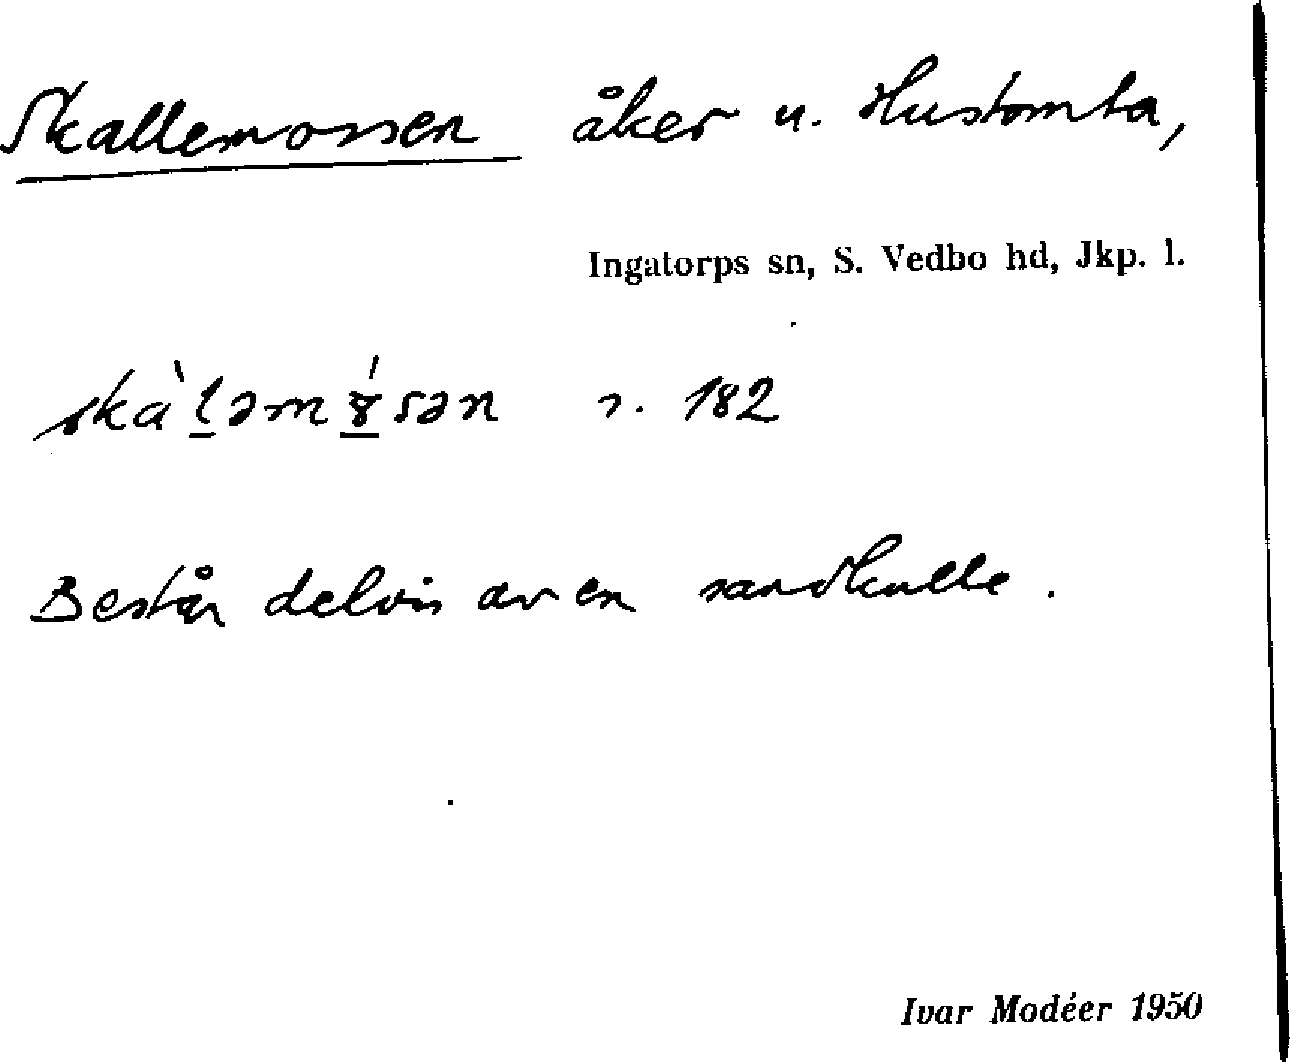 Skallemossen åker u. Hustomta,
Ingatorps sn, S. Vedbo hd, Jkp. l.
ska`ləm8́sən r. 182
Består delvis av en sandkulle.
Ivar Modéer 1950